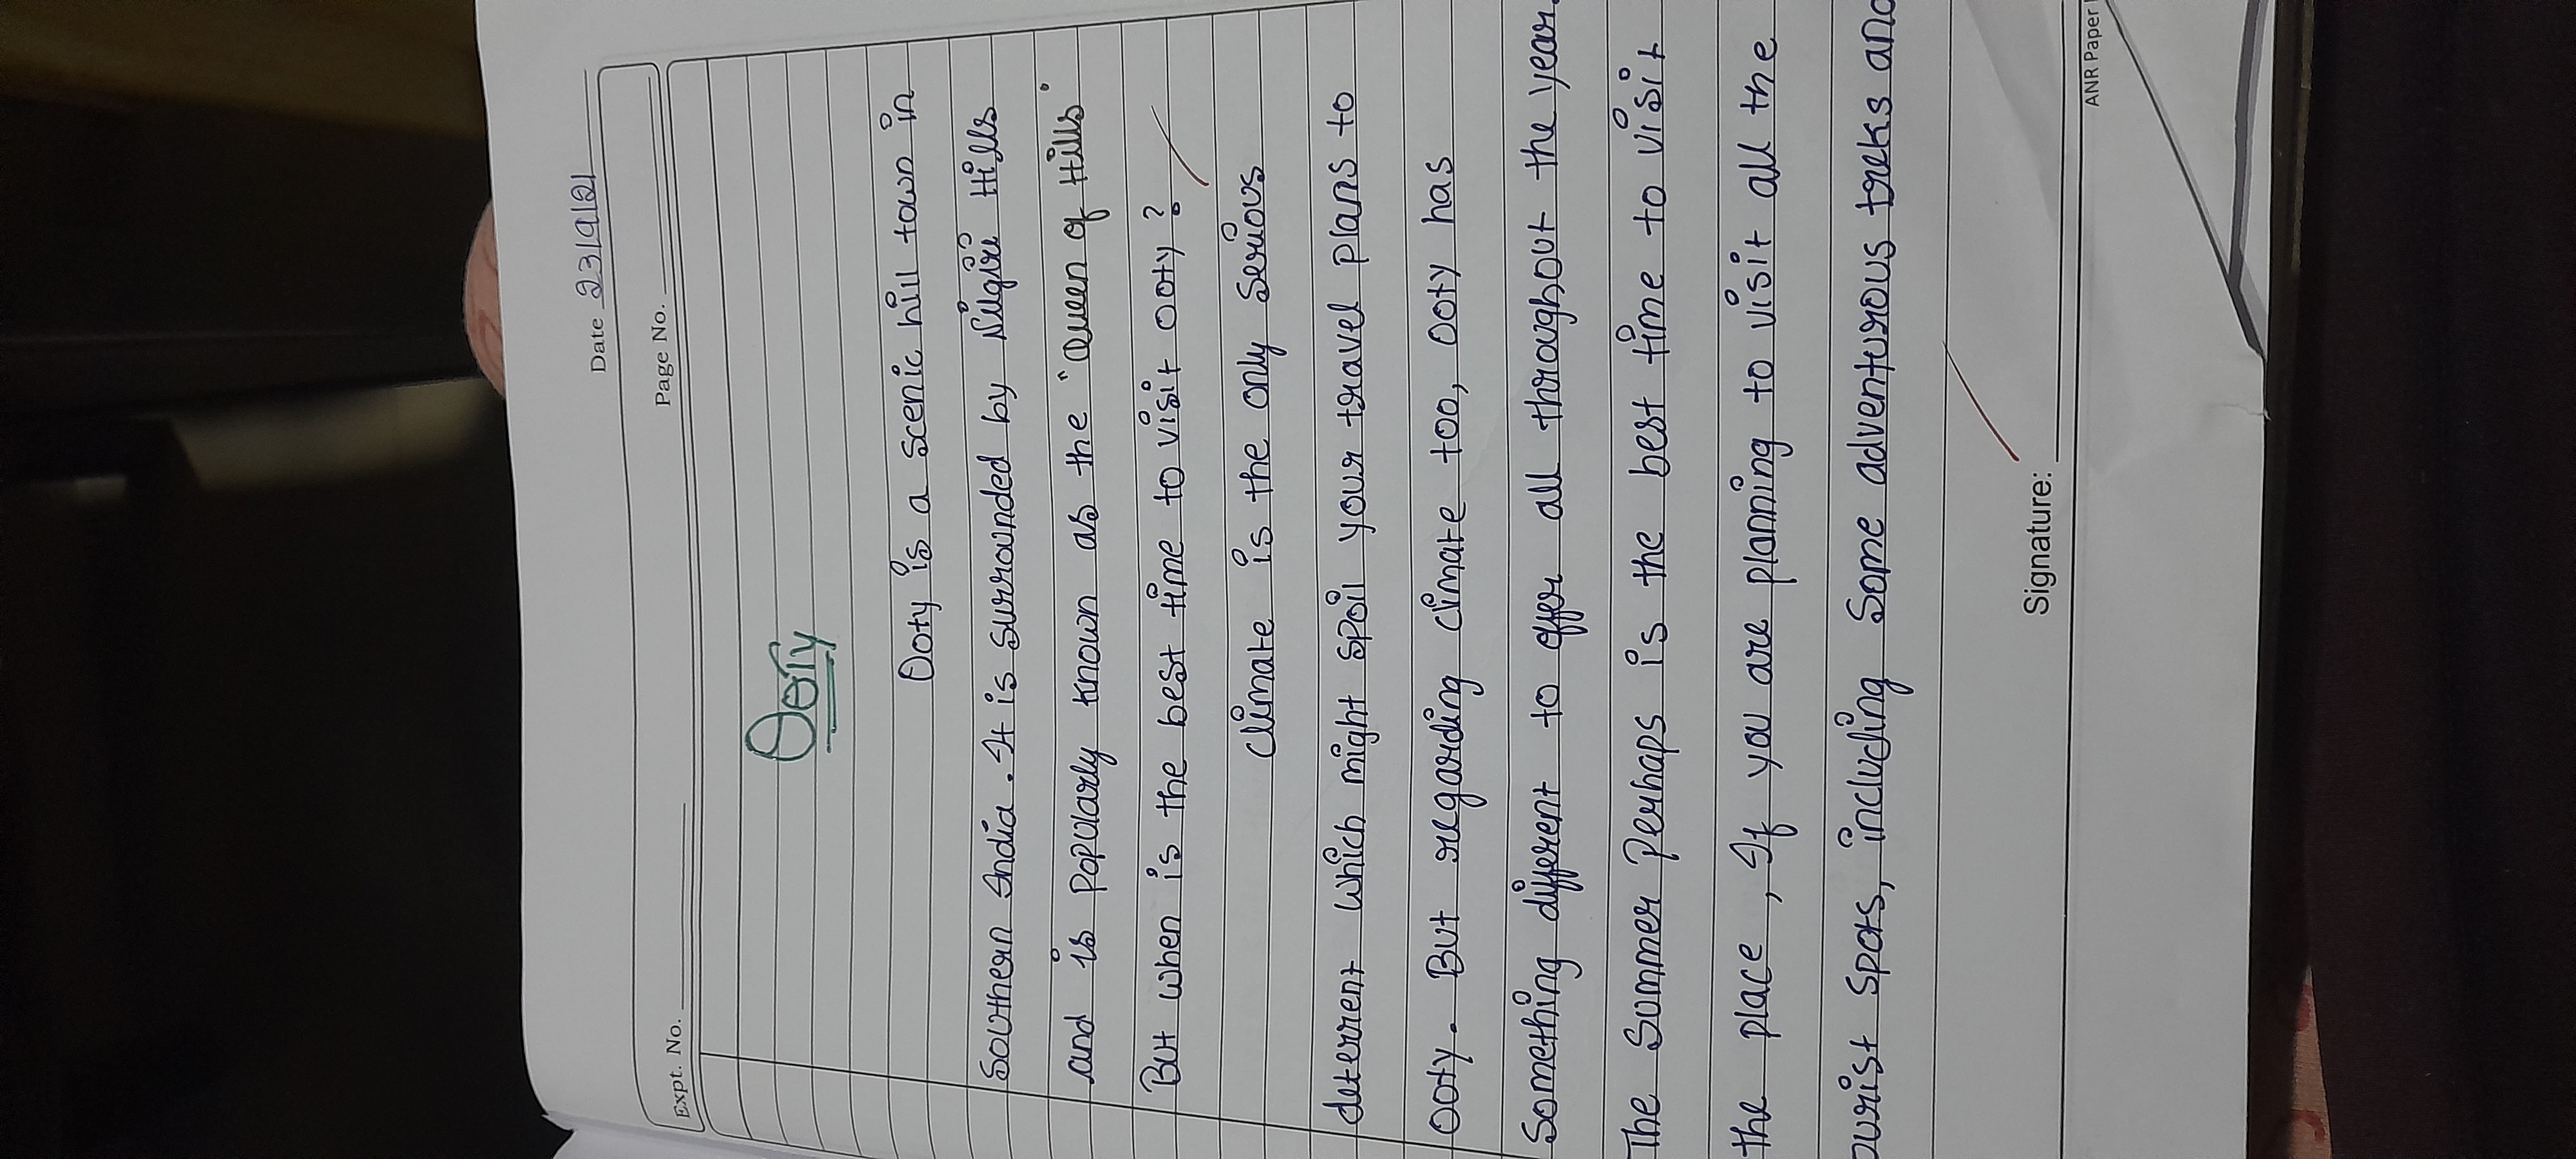 Date 23/9/21
Expt. No.
Page No.
Ooty
Ooty is a scenic hill town in
Southern India. It is surrounded by Nilgiri Hills
and is popularly known as the "Queen of Hills"
But when is the best time to visit ooty?
climate is the only serious
deterrent which might spoil your travel plans to
ooty. But regarding climate too, ooty has
Something different to offer all throughout the year.
The Summer Perhaps is the best time to visit
the place, If you are planning to visit all the
ourist spots, including Some adventurous treks and
Signature:
ANR Paper